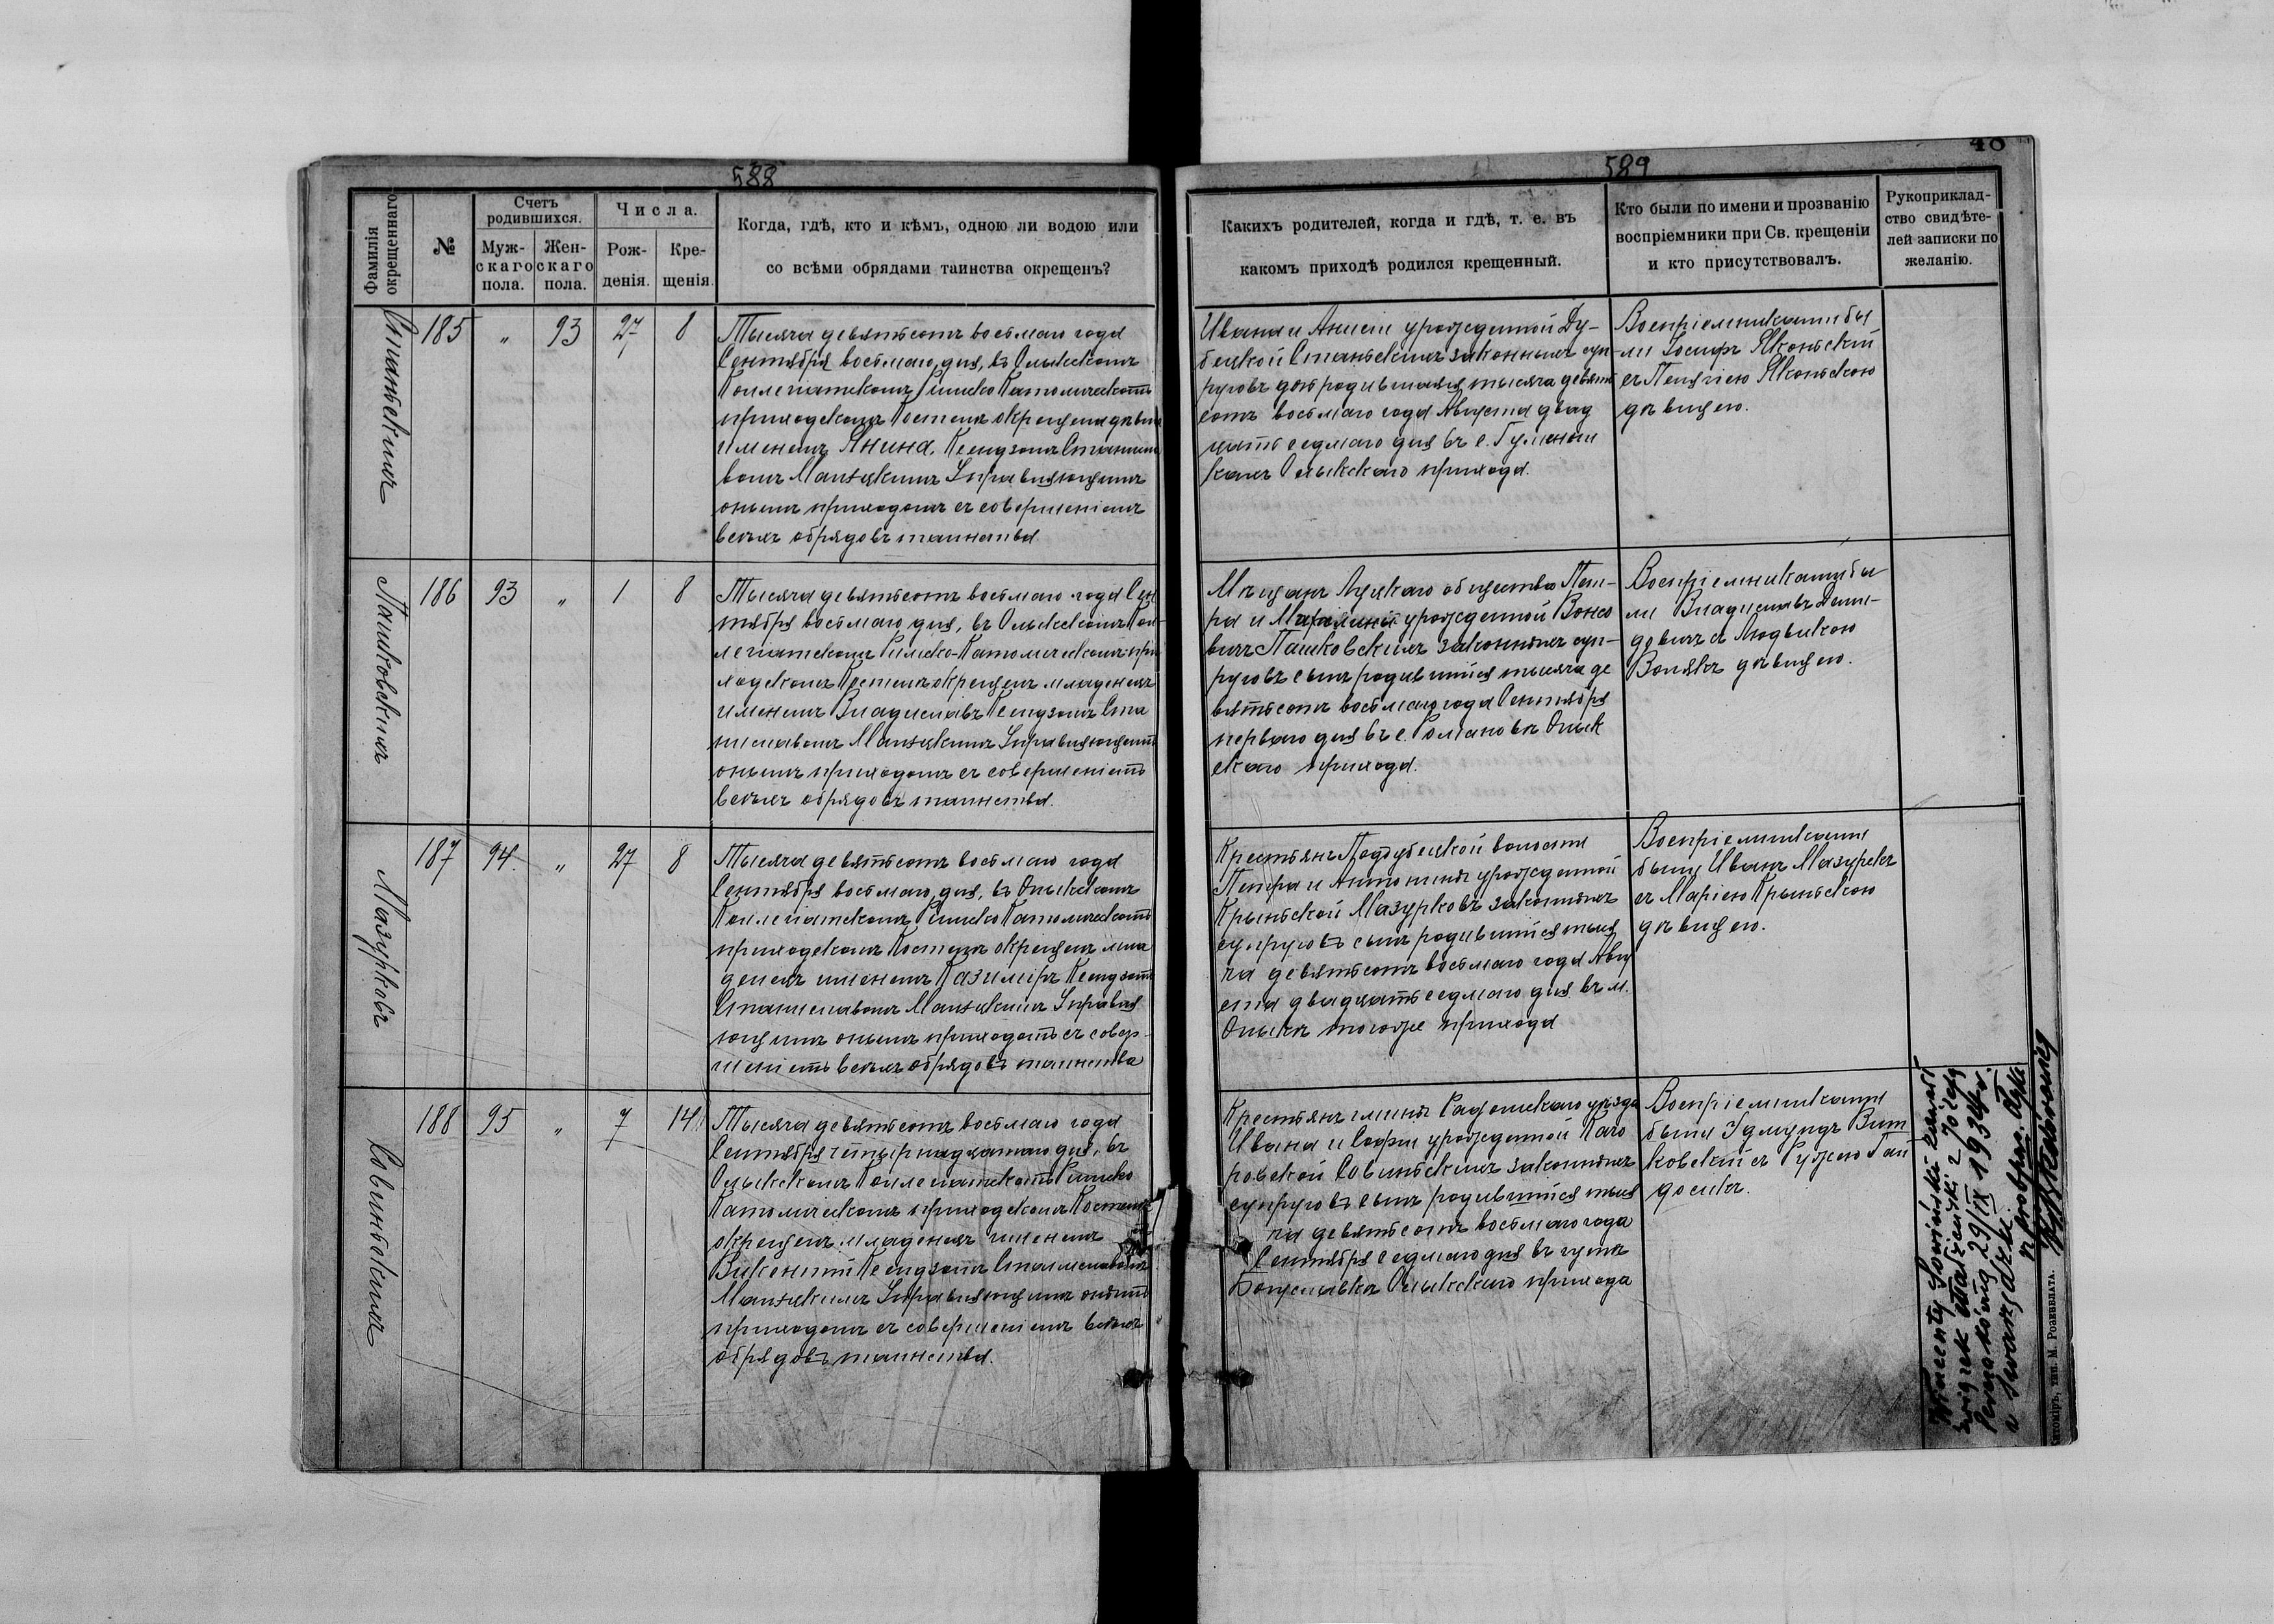 588
Фамилія
окрещеннаго
№
Счетъ
родившихся.
Муж-
скаго
пола.
Жен-
скаго
пола.
Числа.
Рож-
денія.
Кре-
щенія.
Когда, гдѣ, кто и кѣмъ, одною ли водою или
со всѣми обрядами таинства окрещенъ?
185
"
93
27
8
Тысяча девятьсотъ восьмаго года
Сентября восьмаго дня, въ Олыкскомъ
Коллегіатскомъ Римско Католическомъ
приходскомъ Костелѣ окрещена
именемъ Янина. Ксендзомъ
Управляющимъ
онымъ приходомъ съ совершеніемъ
всѣхъ обрядовъ таинства.
Пашковскихъ
186
93
"
1
8
Тысяча девятьсотъ восьмаго года Сен
тября восьмаго дня, въ Олыкскомъ Кол-
легіатскомъ Римско-Католическомъ при
ходскомъ Костелѣ окрещенъ младенецъ
именемъ Владиславъ Ксендзомъ Ста
ниславомъ Управляющимъ
онымъ приходомъ съ совершеніемъ
всѣхъ обрядовъ таинства.
Мазурковъ
187
94.
"
27
8
Тысяча девятьсотъ восьмаго года
Сентября восьмаго дня, въ Олыкскомъ
Коллегіатскомъ Римско Католическомъ
приходскомъ Костелѣ окрещенъ мла
денецъ именемъ Казиміръ Ксендзомъ
Станиславомъ Управля
ющимъ онымъ приходомъ съ совер-
шеніемъ всѣхъ обрядовъ таинства
Совиньскихъ
188
95
"
7
14
Тысяча девятьсотъ восьмаго года
Сентября четырнадцатаго дня, въ
Олыкскомъ Коллегіатскомъ Римско
Католическомъ приходскомъ Костелѣ
окрещенъ младенецъ именемъ
Викентій Ксендзомъ Станиславомъ
Управляющимъ онымъ
приходомъ съ совершеніемъ всѣхъ
обрядовъ таинства.
589
48
Какихъ родителей, когда и гдѣ, т. е. въ
какомъ приходѣ родился крещенный.
Кто были по имени и прозванію
воспріемники при Св. крещеніи
и кто присутствовалъ.
Рукоприклад-
ство свидѣте-
лей записки по
желанію.
Ивана и урожденной Ду-
бицкой законныхъ суп
руговъ дочь родившаяся тысяча девять
сотъ восьмаго года Августа двад
цать седмаго дня въ с.
Олыкскаго прихода.
Воспріемниками бы
ли Іосифъ Яконьскій
съ Яконьскою
дѣвицею.
Мѣщанъ Луцкаго общества Пет-
ра и урожденной
Пашковскихъ законныхъ суп-
руговъ сынъ родившійся тысяча де
вятьсотъ восьмаго года Сентября
перваго дня въ с. Романовѣ Олык
скаго прихода.
Воспріемниками бы
ли Владиславъ
съ Людвикою
дѣвицею.
Крестьянъ Поддубецкой волости
Петра и Антонины урожденной
Крыньской Мазурковъ законныхъ
супруговъ сынъ родившійся тыся
ча девятьсотъ восьмаго года Авгу
ста двадцать седмаго дня въ м.
Олыкѣ тогоже прихода
Воспріемниками
были Иванъ Мазурекъ
съ Маріею Крыньскою
дѣвицею.
Крестьянъ гмины Радомскаго уѣзда
Ивана и Софіи урожденной
Совиньскихъ законныхъ
супруговъ сынъ родившійся тыся
ча девятьсотъ восьмаго года
Сентября седмаго дня въ
Олыкскаго прихода
Воспріемниками
были Эдмундъ Вит
ковскій съ
Wincenty Sowiński zawarł
związek małżeński z Józefą
29/IX 1934 r.
М. Розенблата.